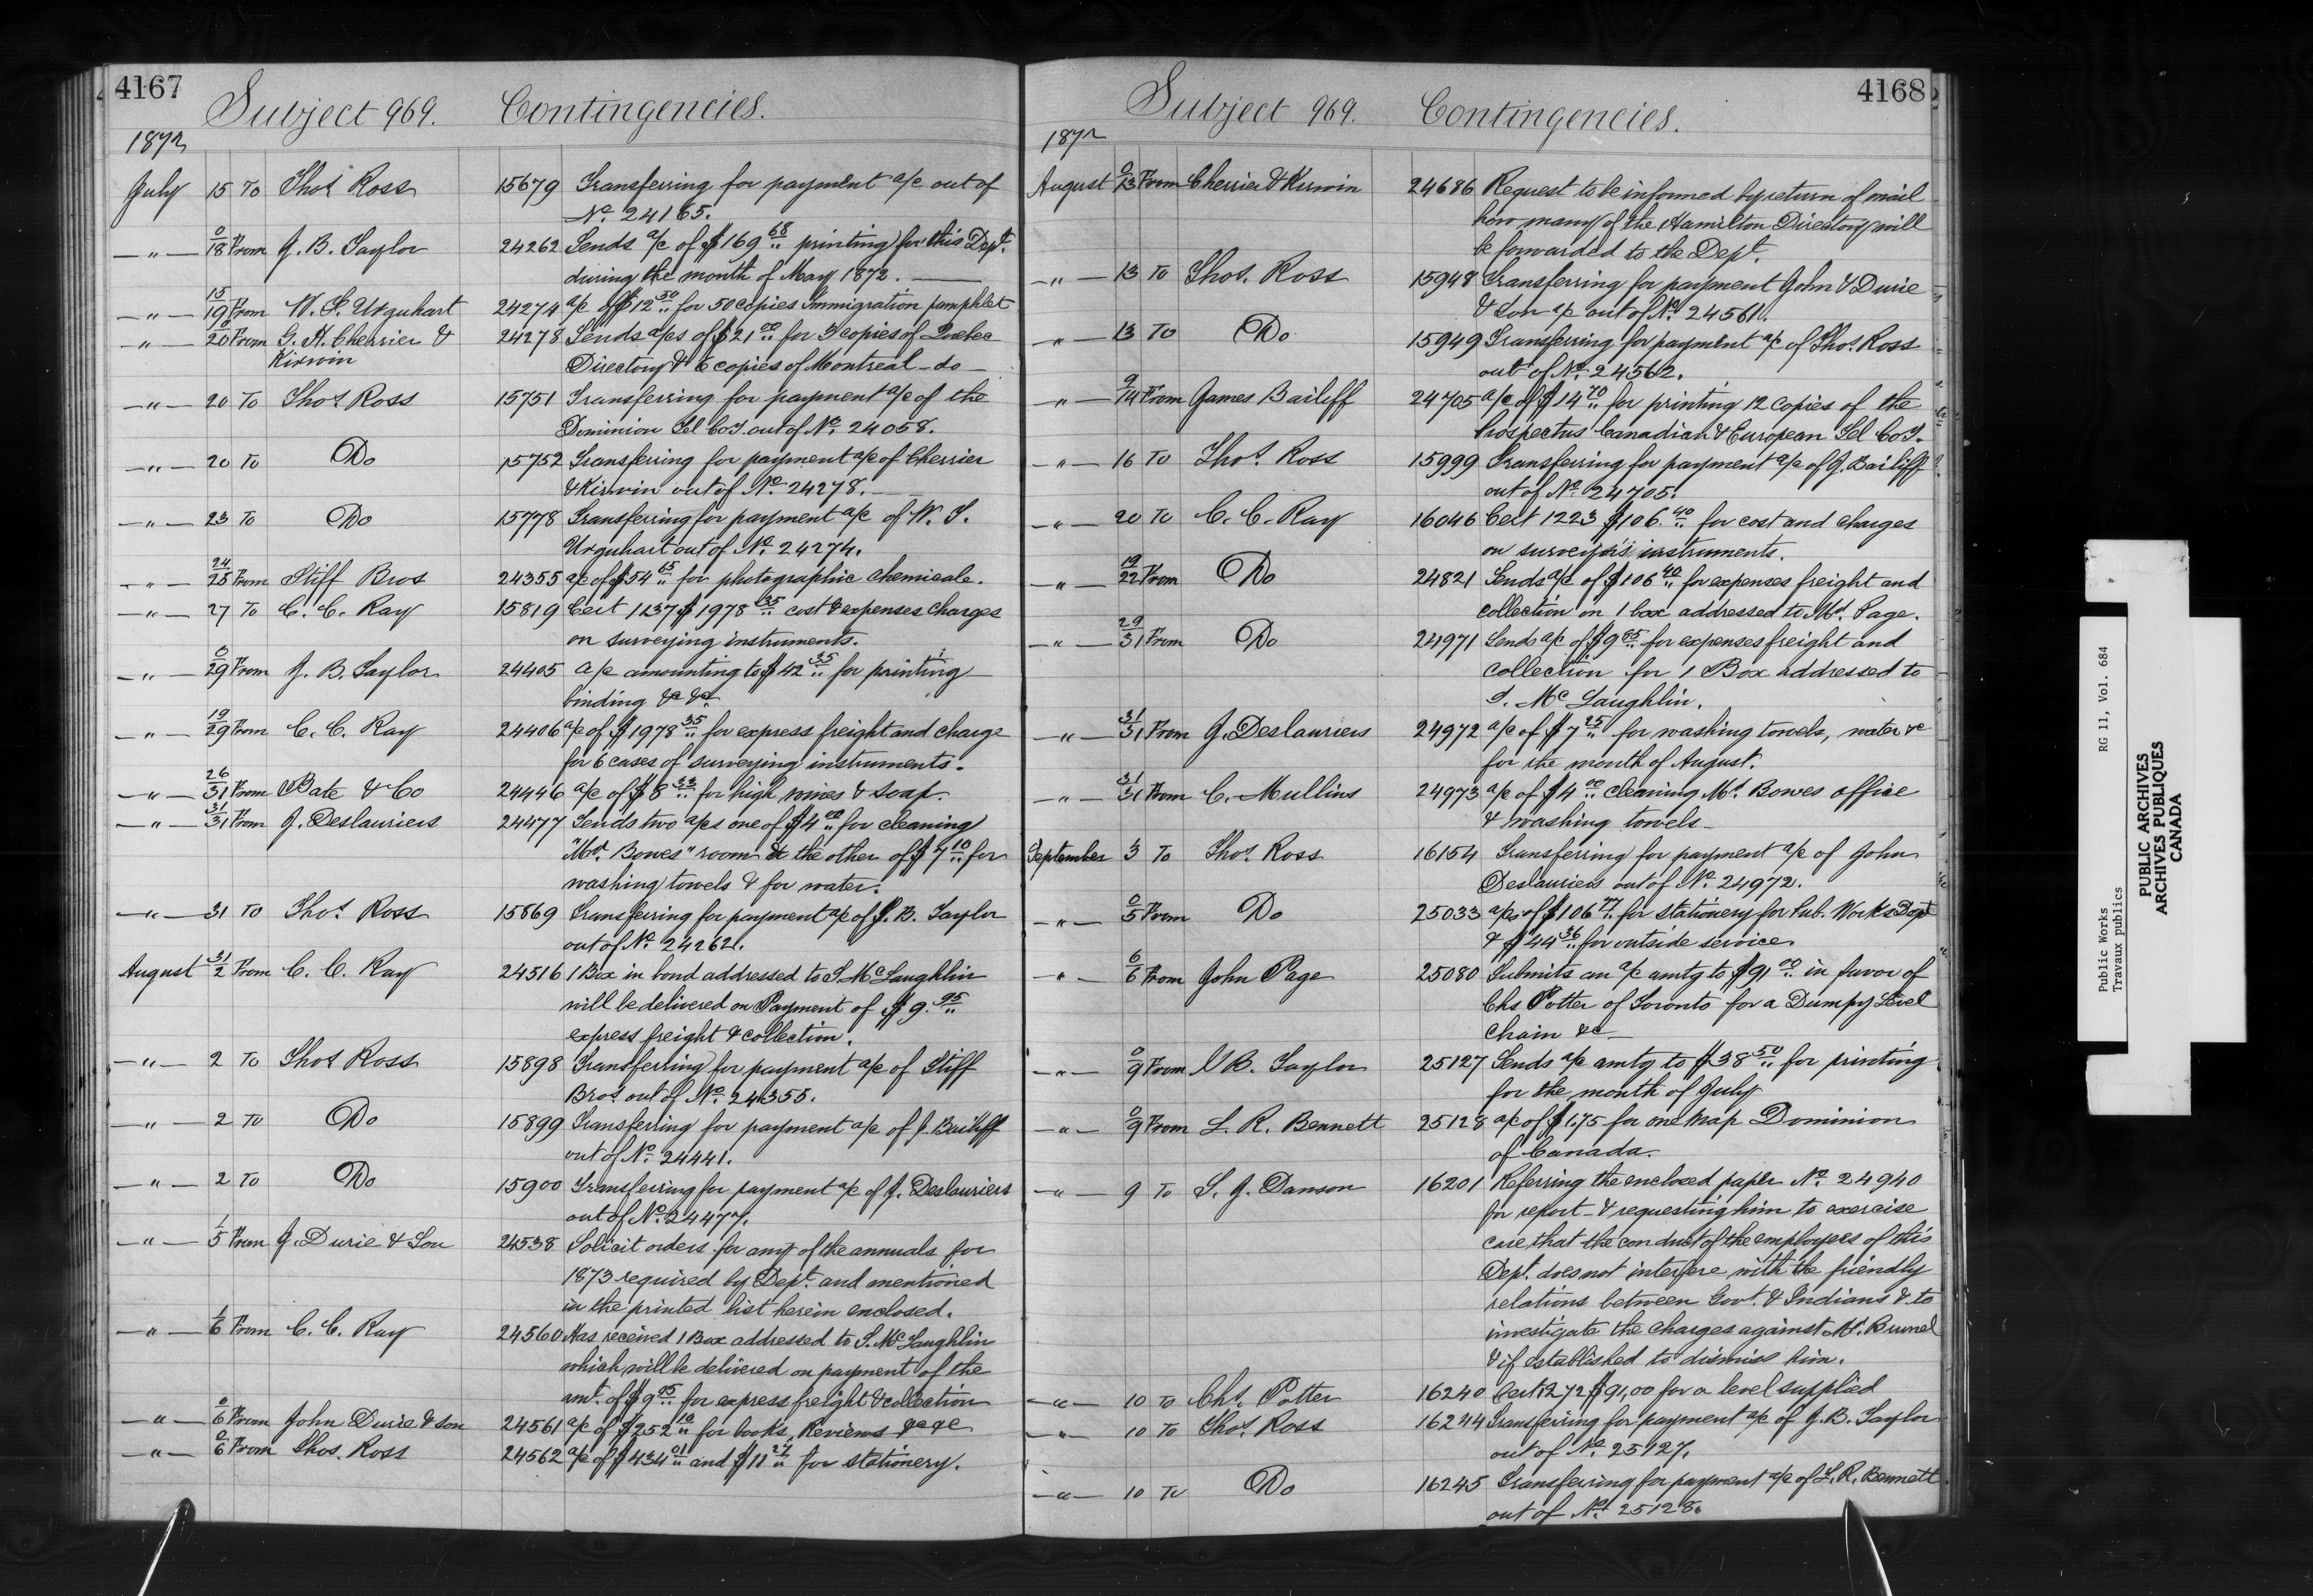 4167
Subject 969. Contingencies.
1872
July 15 To Thos Ross 15679 Transferring for payment a/c out of
No. 24165.
—"— 0/18 From J. B. Taylor 24262 Sends a/c of $169 68/" printing for this Dept.
during the month of May 1872.
—"— 15/19 From W. T. Urquhart 24274 a/c of $12 50/" for 50 copies Immigration pamphlet
—"— 0/20 From G. H. Cherrier & 24278 Sends a/cs of $21 00/" for 3 copies of Quebec
Kirwin Directory & 6 copies of Montreal - do -
—"— 20 To Thos Ross 15751 Transferring for payment a/c of the
Dominion Tel CoY. out of No. 24058.
—"— 20 To Do 15752 Transferring for payment a/c of Cherrier
& Kirwin out of No. 24278.
—"— 23 To Do 15778 Transferring for payment a/c of W. T.
Urquhart out of No. 24274.
—"— 24/25 From Stiff Bros 24355 a/c of $54 65/" for photographic chemicals.
—"— 27 To C. C. Ray 15819 Cert 1237 $1978 35/" cost & expenses charges
on surveying instruments.
—"— 0/29 From J. B. Taylor 24405 a/c amounting to $42 35/" for printing
binding &c &c
—"— 19/29 From C. C. Ray 24406 a/c of $1978 35/" for express freight and charge
for 6 cases of surveying instruments.
—"— 26/31 From Bate & Co 24446 a/c of $8 33/" for high wines & soap.
—"— 31/31 From J. Deslauriers 24477 Sends two a/cs one of $4 00/" for cleaning
"Mr. Bowes" room & the other of $7 10/" for
washing towels & for water.
—"— 31 To Thos Ross 15869 Transferring for payment a/c of J. B. Taylor
out of No. 24262.
August 31/2 From C. C. Ray 24516 1 Box in bond addressed to T. McLaughlin
will be delivered on Payment of $9. 95/"
express freight & collection.
—"— 2 To Thos Ross 15898 Transferring for payment a/c of Stiff
Bros. out of No. 24355.
—"— 2 To Do 15899 Transferring for payment a/c of J. Bailiff
out of No. 24441.
—"— 2 To Do 15900 Transferring for payment a/c of J. Deslauriers
out of No. 24477.
—"— 1/5 From J. Durie & Son 24538 Solicit orders for any of the annuals for
1873 required by Dept. and mentioned
in the printed list herein enclosed.
—"— 1/6 From C. C. Ray 24560 Has received 1 Box addressed to T. McLaughlin
which will be delivered on payment of the
amt. of $9 95/" for express freight & collection
—"— 0/6 From John Durie & son 24561 a/c of $252 10/" for books, Reviews &c &c
—"— 0/6 From Thos. Ross 24562 a/c of $434 01/" and $11 27/" for stationery.
4168
Subject 969. Contingencies.
1872
August 0/13 From Cherrier & Kirwin 24686 Request to be informed by return of mail
how many of the Hamilton Directory will
be forwarded to the Dept.
—"— 13 To Thos. Ross 15948 Transferring for payment John & Durie
& Son a/c out of No. 24561.
—"— 13 To Do 15949 Transferring for payment a/c of Thos. Ross
out of No. 24562.
—"— 9/14 From James Bailiff 24705 a/c of $14 70/" for printing 12 copies of the
Prospectus Canadian & European Tel CoY.
—"— 16 To Thos. Ross 15999 Transferring for payment a/c of J. Bailiff
out of No. 24705.
—"— 20 To C. C. Ray 16046 Cert 1223 $106. 40/" for cost and charges
on surveyors instruments.
—"— 19/22 From Do 24821 Sends a/c of $106 40/" for expenses freight and
collection on 1 box addressed to Mr. Page.
—"— 29/31 From Do 24971 Sends a/c of $9 85/" for expenses freight and
collection for 1 Box addressed to
T. McLaughlin.
—"— 31/31 From J. Deslauriers 24972 a/c of $7 25/" for washing towels, water &c
for the month of August.
—"— 31/31 From C. Mullins 24973 a/c of $4 00/" cleaning Mr. Bowes office
& washing towels -
September 3 To Thos. Ross 16154 Transferring for payment a/c of John
Deslauriers out of No. 24972.
—"— 0/5 From Do 25033 a/cs of $106 77/" for stationery for Pub. Works Dept
& $44 36/" for outside service.
—"— 6/6 From John Page 25080 Submits an a/c amtg to $91 00/" in favor of
Chs Potter of Toronto for a Dumpy Level
Chain &c —
—"— 0/9 From J B. Taylor 25127 Sends a/c amtg to $38 50/" for printing
for the month of July
—"— 0/9 From L. R. Bennett 25128 a/c of $1.75 for one Map Dominion
of Canada.
—"— 9 To S. J. Dawson 16201 Referring the enclosed paper No. 24940
for report - & requesting him to exercise
care that the conduct of the employees of this
Dept. does not interfere with the friendly
relations between Govt. & Indians & to
investigate the charges against Mr. Brunel
& if established to dismiss him.
—"— 10 To Chs. Potter 16240 Cert 1272 $91,00 for a level supplied
—"— 10 To Thos. Ross 16244 Transferring for payment a/c of J. B. Taylor
out of No. 25127.
—"— 10 To Do 16245 Transferring for payment a/c of L. R. Bennett
out of No. 25128.
Public Works RG 11, Vol. 684
Travaux publics
PUBLIC ARCHIVES
ARCHIVES PUBLIQUES
CANADA